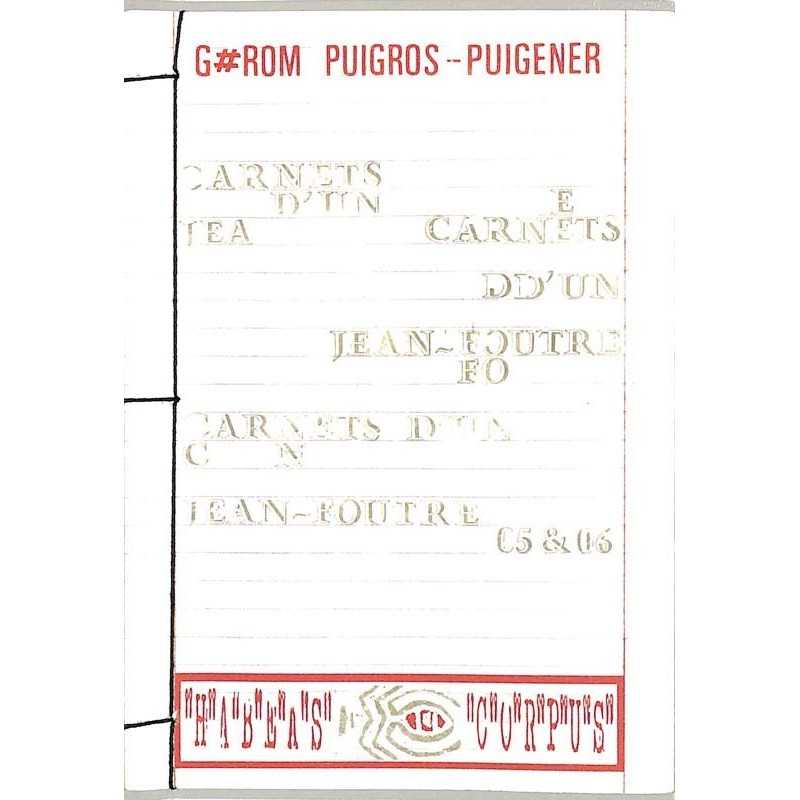 G#ROM PUIGROS--PUIGENER
CARNETS
D'UN
JEA
E
CARNETS
DD'UN
JEAN~FOUTRE
FO
CARNETS D'UN
C N
JEAN~FOUTRE
05 & 06
"H"A"B"E"A"S" "C"O"R"P"U"S"